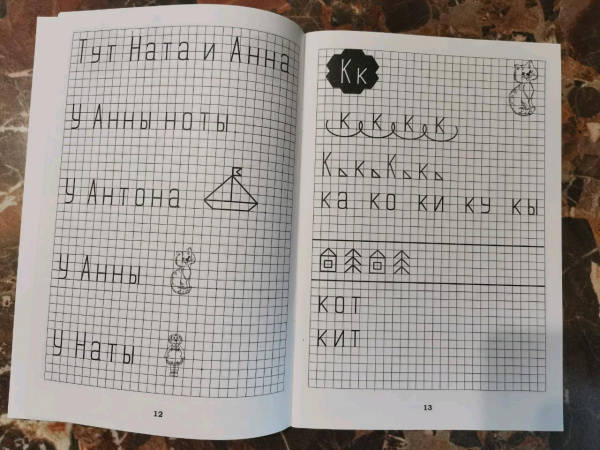 Тут Ната и Анна
У Анны ноты.
У Антона
У Анны
У Наты
12
Кк
К К К К
К к К к
ка ко ки ку кы
кот
кит
13